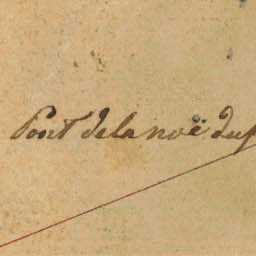 Pont de la noë du